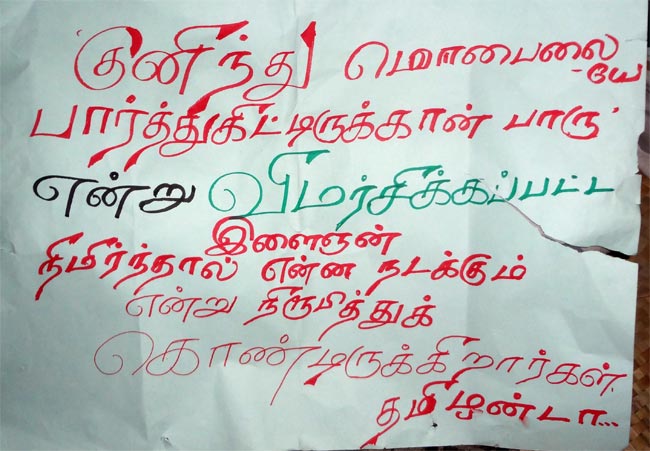 'குனிந்து மொபைலை
-யே
பார்த்துகிட்டிருக்கான் பாரு'
என்று விமர்சிக்கப்பட்ட
இளைஞன்
நிமிர்ந்தால் என்ன நடக்கும்
என்று நிரூபித்துக்
கொண்டிருக்கிறார்கள்.
தமிழன்டா...